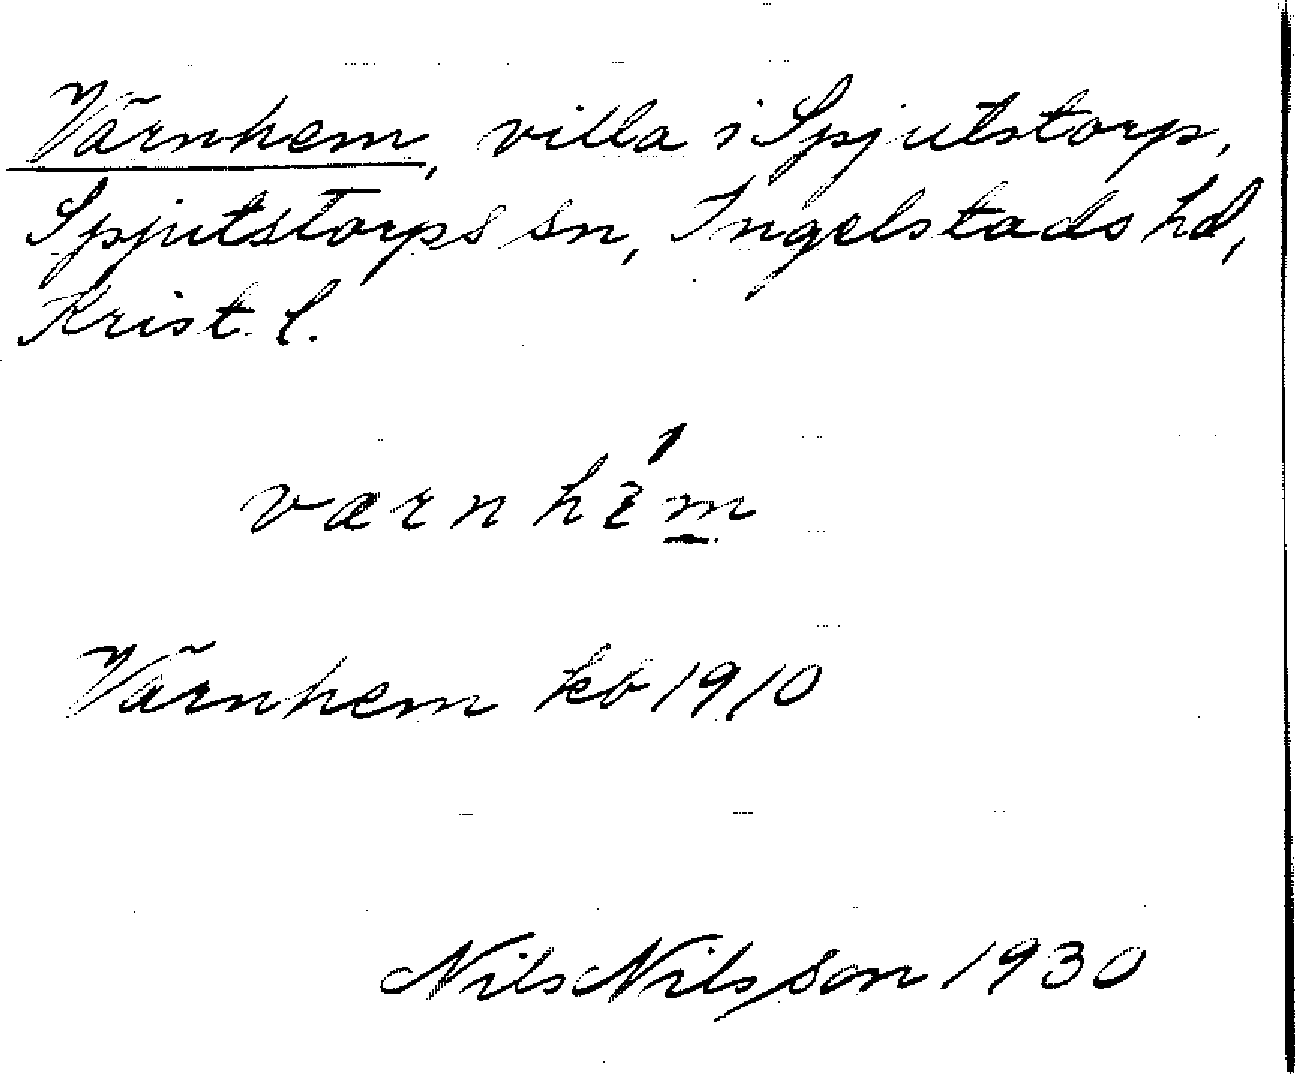 Värnhem, villa i Spjutstorp,
Spjutstorps sn, Ingelstads hd,
Krist. l.
værnhém
Värnhem kb 1910
Nils Nilsson 1930